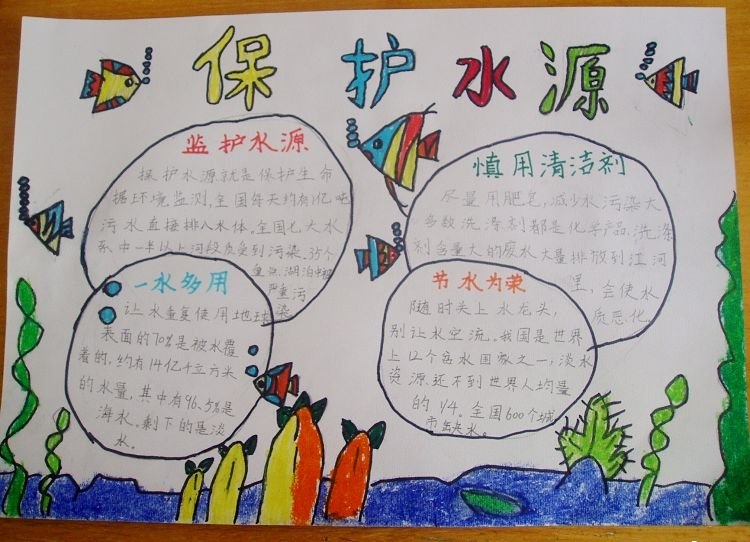 保护水源
监护水源
保护水源就是保护生命
据环境监测,全国每天约有1亿吨
污水直接排入水体。全国七大水
系中一半以上河段水质受到污染。35个
重点湖泊中被
严重污
染
慎用清洁剂
尽量用肥皂,减少水污染大
多数洗涤剂都是化学产品,洗涤
剂含量大的废水大量排放到江河
里,会使水
质恶化。
一水多用
让水重复使用地球
表面的70%是被水覆
着的。约有14亿千立方米
的水量,其中有96.5%是
海水。剩下的是淡
水。
节水为荣
随时关上水龙头,
别让水空流。我国是世界
上12个贫水国家之一,淡水
资源还不到世界人均量
的1/4。全国600个城
市缺水。